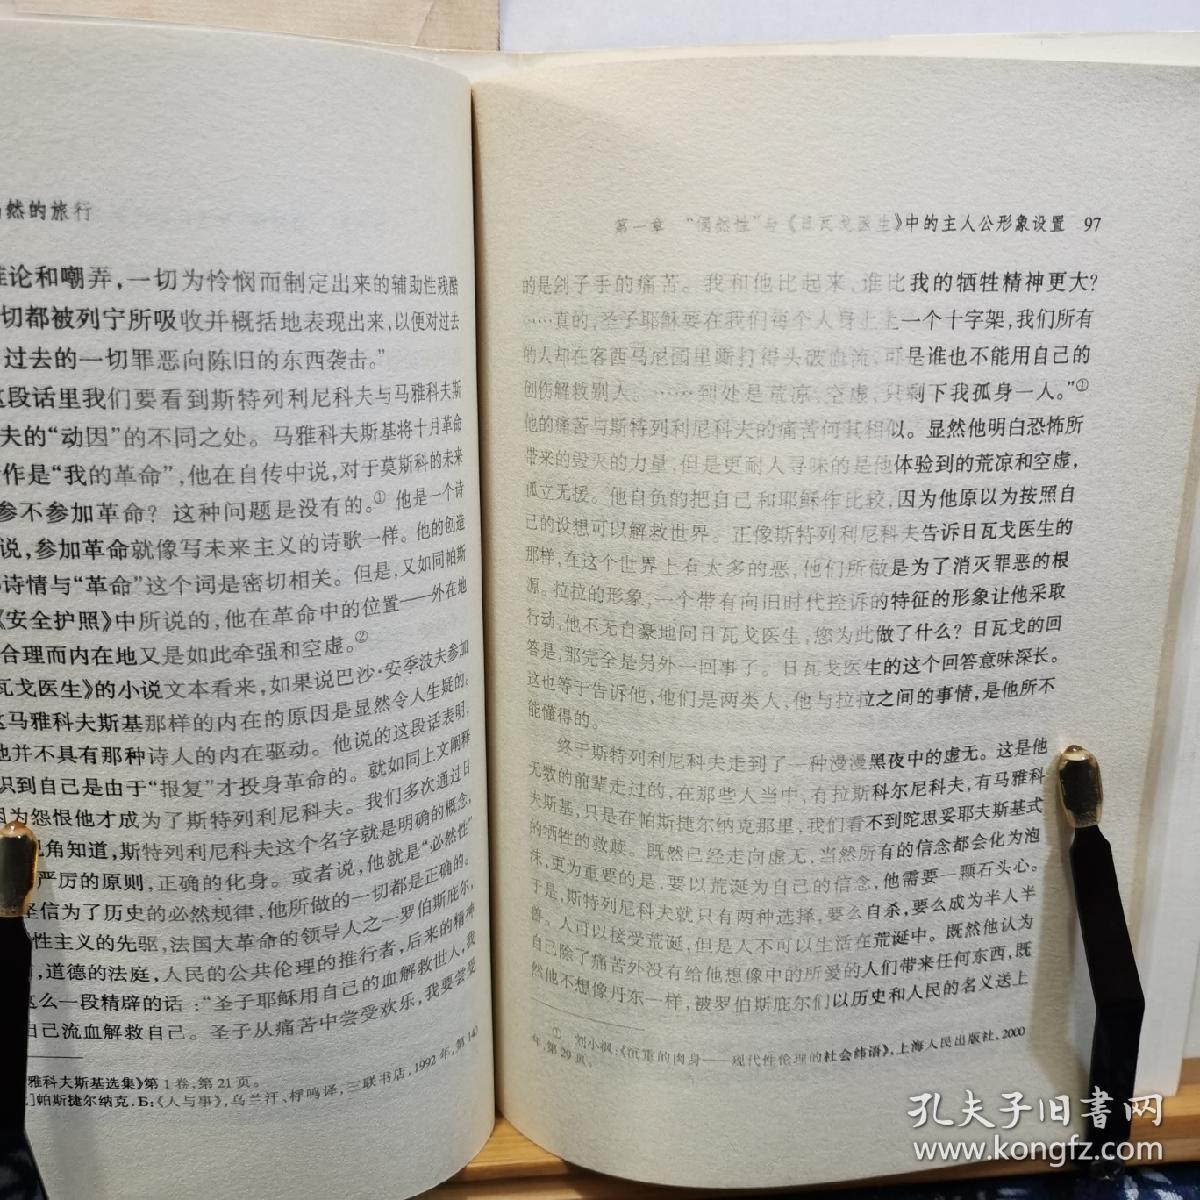 然的旅行
论和嘲弄，一切为怜悯而制定出来的辅助性残酷
切都被列宁所吸收并概括地表现出来，以便对过去
过去的一切罪恶向陈旧的东西袭击。”
这段话里我们要看到斯特列利尼科夫与马雅科夫斯
夫的“动因”的不同之处。马雅科夫斯基将十月革命
作是“我的革命”，他在自传中说，对于莫斯科的未来
参不参加革命？这种问题是没有的。① 他是一个诗
说，参加革命就像写未来主义的诗歌一样。他的创造
诗情与“革命”这个词是密切相关。但是，又如同帕斯
《安全护照》中所说的，他在革命中的位置——外在地
合理而内在地又是如此牵强和空虚。②
瓦戈医生》的小说文本看来，如果说巴沙·安季波夫参加
这马雅科夫斯基那样的内在的原因是显然令人生疑的。
他并不具有那种诗人的内在驱动。他说的这段话表明，
识到自己是由于“报复”才投身革命的。就如同上文阐释
因为怨恨他才成为了斯特列利尼科夫。我们多次通过日
视角知道，斯特列利尼科夫这个名字就是明确的概念，
严厉的原则，正确的化身。或者说，他就是“必然性”
坚信为了历史的必然规律，他所做的一切都是正确的。
性主义的先驱，法国大革命的领导人之一罗伯斯庇尔，
，道德的法庭，人民的公共伦理的推行者，后来的精神
这么一段精辟的话：“圣子耶稣用自己的血解救世人，我
自己流血解救自己。圣子从痛苦中尝受欢乐，我要尝受
雅科夫斯基选集》第1卷，第21页。
]帕斯捷尔纳克.Б：《人与事》，乌兰汗、桴鸣译，三联书店，1992年，第140
第一章 “偶然性”与《日瓦戈医生》中的主人公形象设置 97
的是刽子手的痛苦。我和他比起来，谁比我的牺牲精神更大？
……真的，圣子耶稣要在我们每个人身上上一个十字架，我们所有
的人却在客西马尼园里厮打得头破血流，可是谁也不能用自己的
创伤解救别人。……到处是荒凉、空虚，只剩下我孤身一人。”①
他的痛苦与斯特列利尼科夫的痛苦何其相似。显然他明白恐怖所
带来的毁灭的力量，但是更耐人寻味的是他体验到的荒凉和空虚，
孤立无援。他自负的把自己和耶稣作比较，因为他原以为按照自
己的设想可以解救世界。正像斯特列利尼科夫告诉日瓦戈医生的
那样，在这个世界上有太多的恶，他们所做是为了消灭罪恶的根
源。拉拉的形象，一个带有向旧时代控诉的特征的形象让他采取
行动，他不无自豪地问日瓦戈医生，您为此做了什么？日瓦戈的回
答是，那完全是另外一回事了。日瓦戈医生的这个回答意味深长。
这也等于告诉他，他们是两类人，他与拉拉之间的事情，是他所不
能懂得的。
终于斯特列利尼科夫走到了一种漫漫黑夜中的虚无。这是他
无数的前辈走过的，在那些人当中，有拉斯科尔尼科夫，有马雅科
夫斯基，只是在帕斯捷尔纳克那里，我们看不到陀思妥耶夫斯基式
的牺牲的救赎。既然已经走向虚无，当然所有的信念都会化为泡
沫，更为重要的是，要以荒诞为自己的信念，他需要一颗石头心。
于是，斯特列尼科夫就只有两种选择，要么自杀，要么成为半人半
兽。人可以接受荒诞，但是人不可以生活在荒诞中。既然他认为
自己除了痛苦外没有给他想像中的所爱的人们带来任何东西，既
然他不想像丹东一样，被罗伯斯庇尔们以历史和人民的名义送上
① 刘小枫：《沉重的肉身——现代性伦理的社会纬语》，上海人民出版社，2000
年，第29页。
孔夫子旧书网
www.kongfz.com